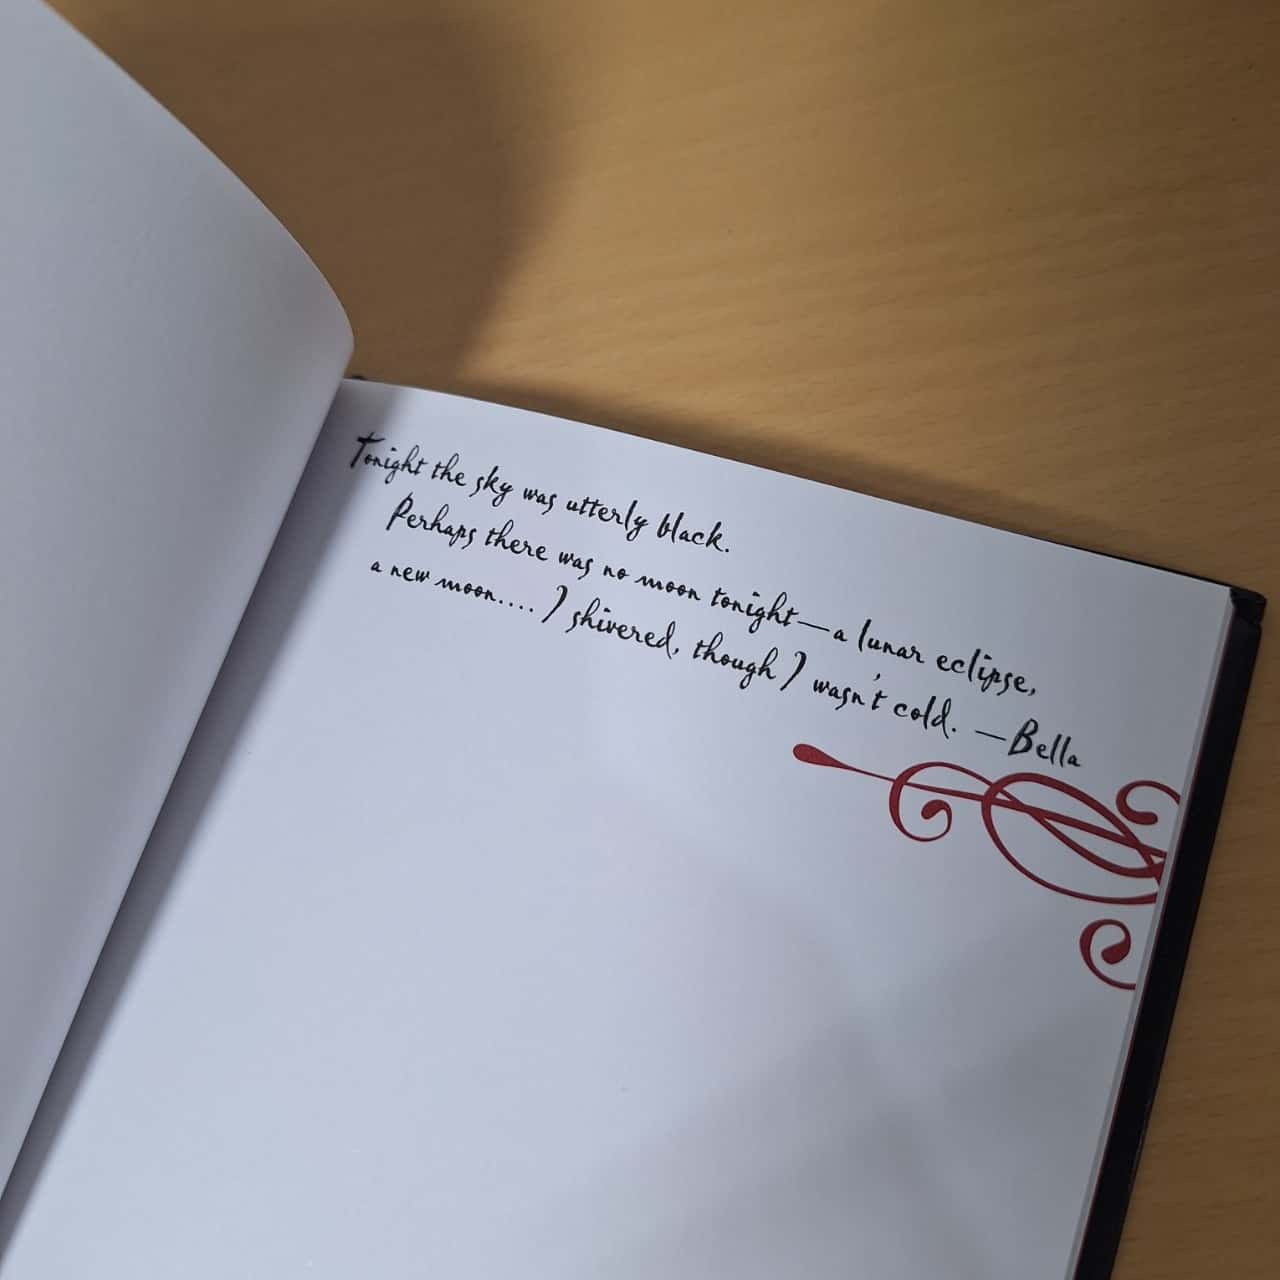 Tonight the sky was utterly black.
Perhaps there was no moon tonight—a lunar eclipse,
a new moon.... I shivered, though I wasn't cold. —Bella